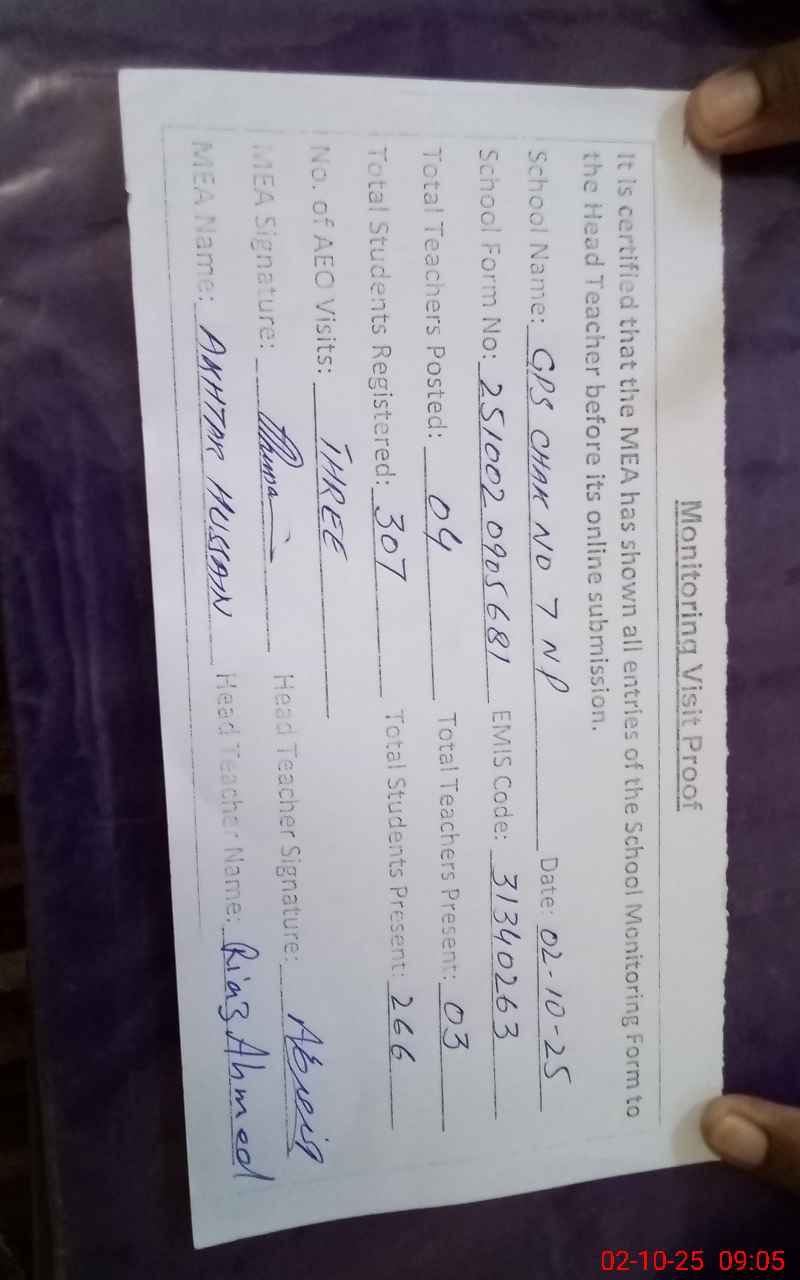 Monitoring Visit Proof
It is certified that the MEA has shown all entries of the School Monitoring Form to
the Head Teacher before its online submission.
School Name: GPS CHAK NO 7 NP Date: 02-10-25
School Form No: 251002 0905681 EMIS Code: 31340263
Total Teachers Posted: 04 Total Teachers Present: 03
Total Students Registered: 307 Total Students Present: 266
No. of AEO Visits: THREE
MEA Signature: Head Teacher Signature:
MEA Name: AKHTAR HUSSAIN Head Teacher Name: Riaz Ahmed
02-10-25 09:05